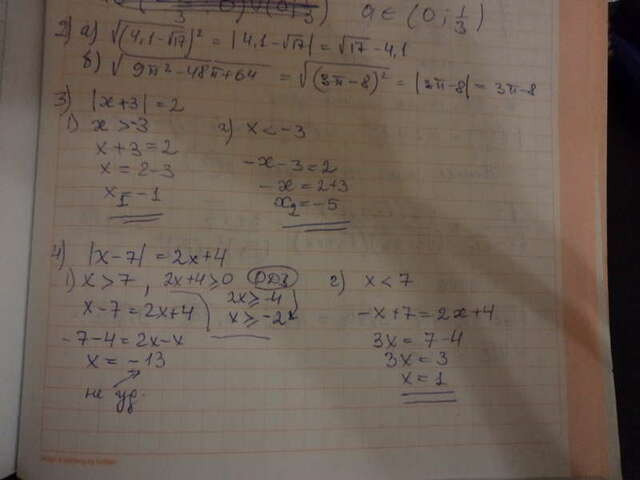 a ∈ (0; 1/3)
2) а) √(4,1-√17)² = |4,1-√17| = √17-4,1
б) √9π²-48π+64 = √(3π-8)² = |3π-8| = 3π-8
3) |x+3| = 2
1) x > -3
x+3 = 2
x = 2-3
x₁ = -1
2) x < -3
-x-3 = 2
-x = 2+3
x₂ = -5
4) |x-7| = 2x+4
1) x > 7, 2x+4 ≥ 0 ОДЗ
x-7 = 2x+4
2x ≥ -4
x ≥ -2
-7-4 = 2x-x
x = -13
не уд.
2) x < 7
-x+7 = 2x+4
3x = 7-4
3x = 3
x = 1